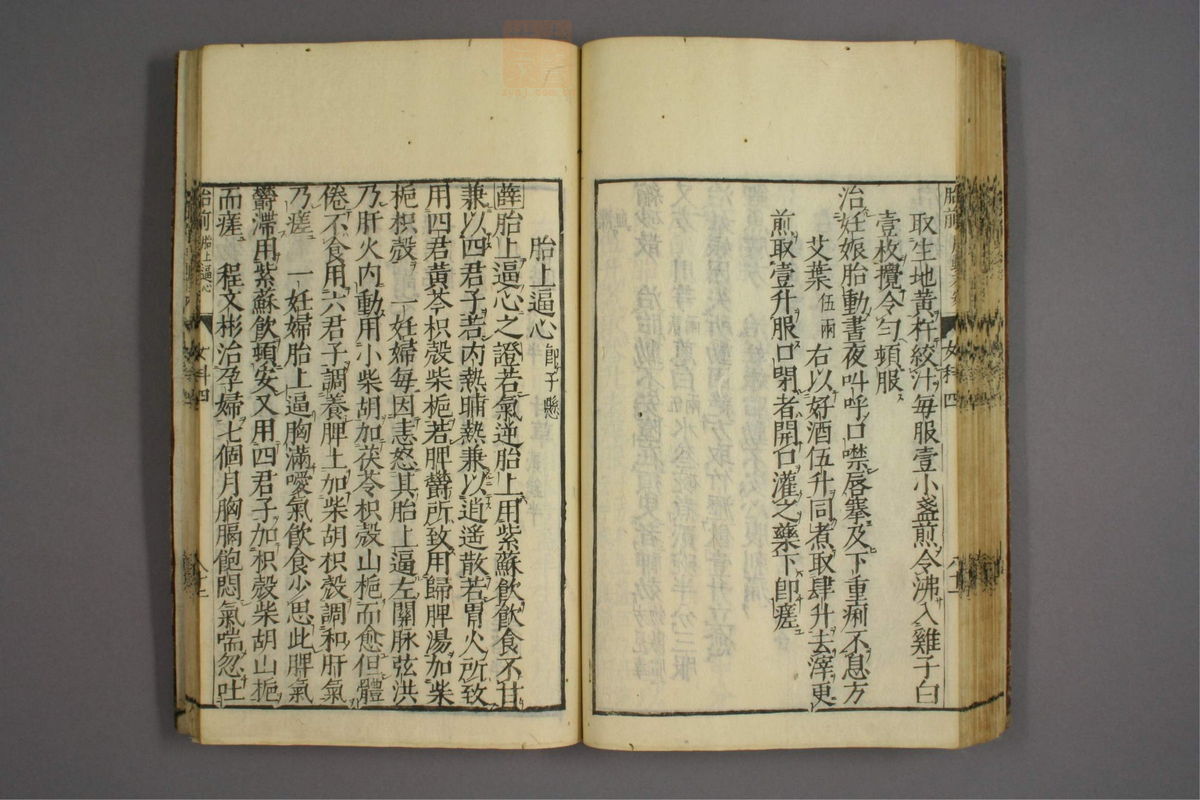 取生地黃杵絞汁每服壹小盞煎令沸入雞子白
壹枚攪令勻頓服
治妊娠胎動晝夜叫呼口噤唇搴及下重痢不息方
艾葉伍兩 右以好酒伍升同煮取肆升去滓更
煎取壹升服口閉者開口灌之藥下卽瘥
胎上逼心卽子懸
薛胎上逼心之證若氣逆胎上用紫蘇飮飮食不甘
兼以四君子若內熱晡熱兼以逍遙散若胃火所致
用四君黃芩枳殼柴梔若脾鬱所致用歸脾湯加柴
梔枳殼 一妊婦每因恚怒其胎上逼左關脉弦洪
乃肝火內動用小柴胡加茯苓枳殼山梔而愈但體
倦不食用六君子調養脾土加柴胡枳殼調和肝氣
乃瘥 一妊婦胎上逼胸滿噯氣飮食少思此脾氣
鬱滯用紫蘇飮頓安又用四君子加枳殼柴胡山梔
而瘥 程文彬治孕婦七個月胸膈飽悶氣喘忽吐
胎前 胎上逼心
女科四